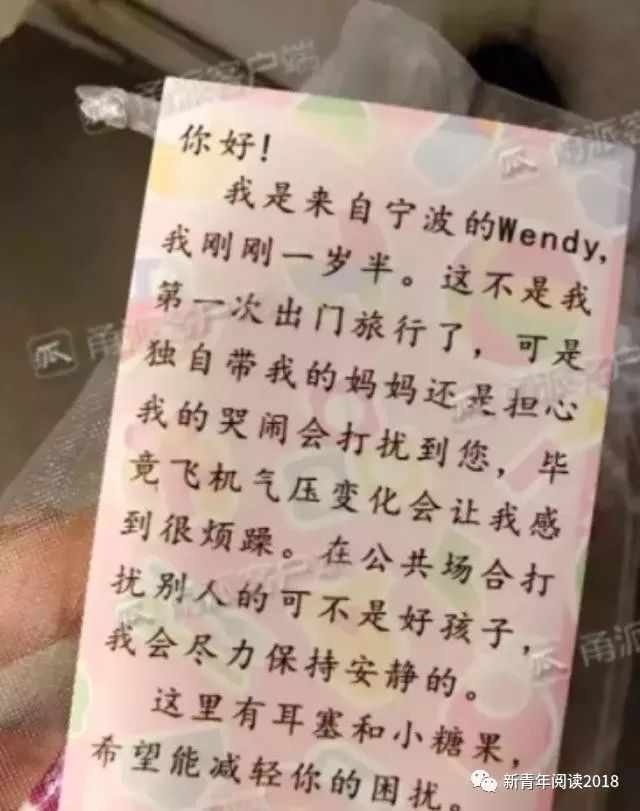 你好!
我是来自宁波的Wendy,
我刚刚一岁半。这不是我
第一次出门旅行了,可是
独自带我的妈妈还是担心
我的哭闹会打扰到您,毕
竟飞机气压变化会让我感
到很烦躁。在公共场合打
扰别人的可不是好孩子,
我会尽力保持安静的。
这里有耳塞和小糖果,
希望能减轻你的困扰。
甬派客户端
甬派客户端
新青年阅读2018